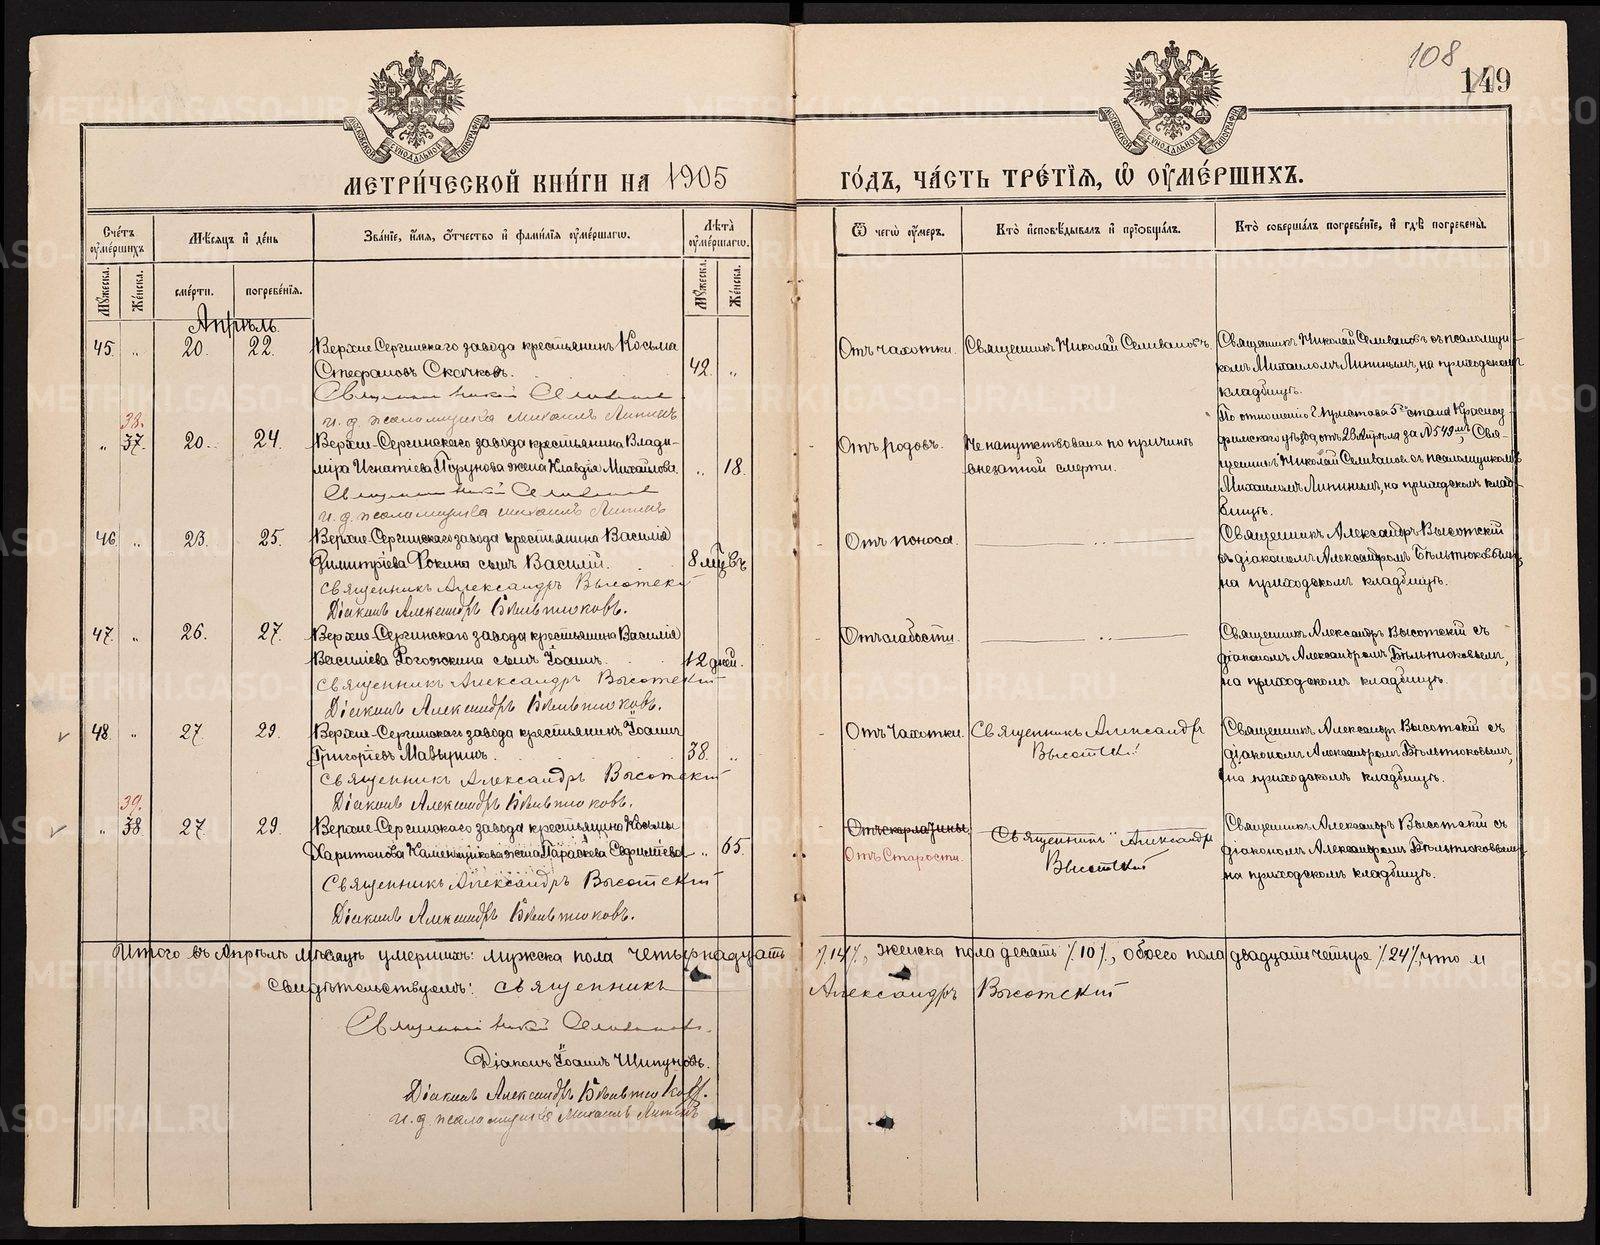 108
149
МЕТРИ́ЧЕСКОЙ КНИ́ГИ НА 1905
ГО́ДЪ, ЧА́СТЬ ТРЕ́ТІѦ, Ѿ ОУМЕ́РШИХЪ.
Счетъ оумершихъ
Мѣсяцъ и день
Званіе, имя, отчество и фамилія оумершагѡ.
Лѣта оумершагѡ.
Ѿ чегѡ оумеръ.
Кто исповѣдывалъ и пріобщалъ.
Кто совершалъ погребеніе, и гдѣ погребены.
Мужеска.
Женска.
смерти.
погребенія.
Мужеска.
Женска.
Апрѣль.
45. „ 20. 22. Верхне-Сергинскаго завода крестьянинъ Косьма
Стефановъ Скачковъ. 42. „
Священникъ Николай Селивановъ
и. д. псаломщика Михаилъ Липинъ
Отъ чахотки.
Священникъ Николай Селивановъ.
Священникъ Николай Селивановъ съ псаломщи-
комъ Михаиломъ Липинымъ, на приходскомъ
кладбищѣ.
38.
„ 37. 20. 24. Верхне-Сергинскаго завода крестьянина Влади-
міра Игнатіева Порунова жена Клавдія Михайлова. „ 18.
Священникъ Николай Селивановъ
и. д. псаломщика Михаилъ Липинъ
Отъ родовъ.
Не напутствована по причинѣ
внезапной смерти.
По отношенію Г. пристава 5го стана Красноу-
фимскаго уѣзда, отъ 23 Апрѣля за № 549мъ, Свя-
щенникъ Николай Селивановъ съ псаломщикомъ
Михаиломъ Липинымъ, на приходскомъ клад-
бищѣ.
46. „ 23. 25. Верхне-Сергинскаго завода крестьянина Василія
Димитріева Фокина сынъ Василій. 8 мѣ-цевъ
Священникъ Александръ Высотскій
Діаконъ Александръ Бѣльтюковъ.
Отъ поноса.
Священникъ Александръ Высотскій
съ діакономъ Александромъ Бѣльтюковымъ,
на приходскомъ кладбищѣ.
47. „ 26. 27. Верхне-Сергинскаго завода крестьянина Василія
Василіева Рогожкина сынъ Іоаннъ. 12 дней.
Священникъ Александръ Высотскій
Діаконъ Александръ Бѣльтюковъ.
Отъ слабости.
Священникъ Александръ Высотскій съ
діакономъ Александромъ Бѣльтюковымъ,
на приходскомъ кладбищѣ.
48. „ 27. 29. Верхне-Сергинскаго завода крестьянинъ Іоаннъ
Григоріевъ Мавыринъ. 38. „
Священникъ Александръ Высотскій
Діаконъ Александръ Бѣльтюковъ.
Отъ чахотки.
Священникъ Александръ
Высотскій
Священникъ Александръ Высотскій съ
діакономъ Александромъ Бѣльтюковымъ,
на приходскомъ кладбищѣ.
39.
„ 38. 27. 29. Верхне-Сергинскаго завода крестьянина Косьмы
Харитонова Каменщикова жена Параскева Евфиміева „ 65.
Священникъ Александръ Высотскій
Діаконъ Александръ Бѣльтюковъ.
Отъ скарлатины
Отъ Старости.
Священникъ Александръ
Высотскій
Священникъ Александръ Высотскій съ
діакономъ Александромъ Бѣльтюковымъ,
на приходскомъ кладбищѣ.
Итого въ Апрѣлѣ мѣсяцѣ умершихъ: мужска пола четырнадцать /.14/., женска пола десять /.10/., обоего пола двадцать четыре /.24/., что и
свидѣтельствуемъ: Священникъ Александръ Высотскій
Священникъ Николай Селивановъ.
Діаконъ Іоаннъ Шипуновъ.
Діаконъ Александръ Бѣльтюковъ.
и. д. псаломщика Михаилъ Липинъ
METRIKI.GASO-URAL.RU